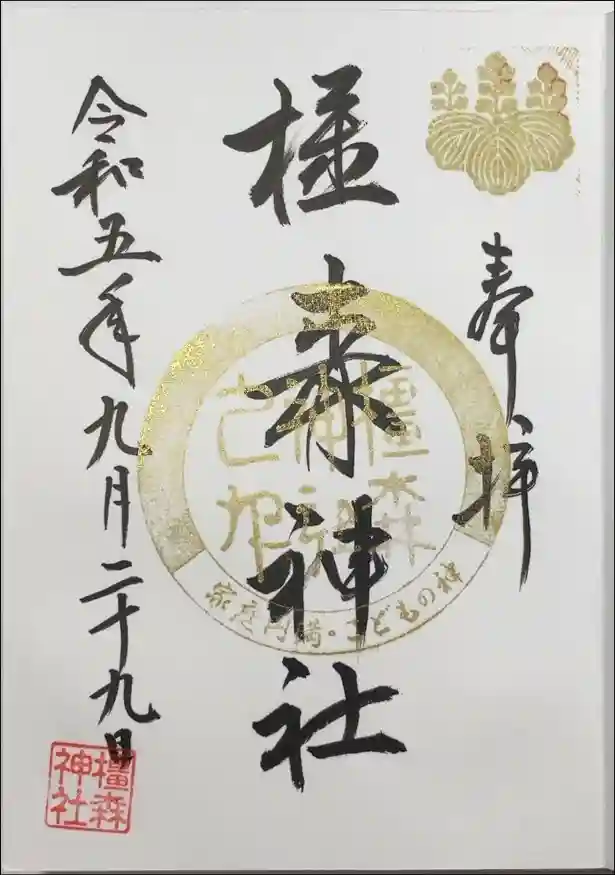 奉拝
橿森神社
橿森
神社
之印
家庭円満・こどもの神
令和五年九月二十九日
橿森
神社